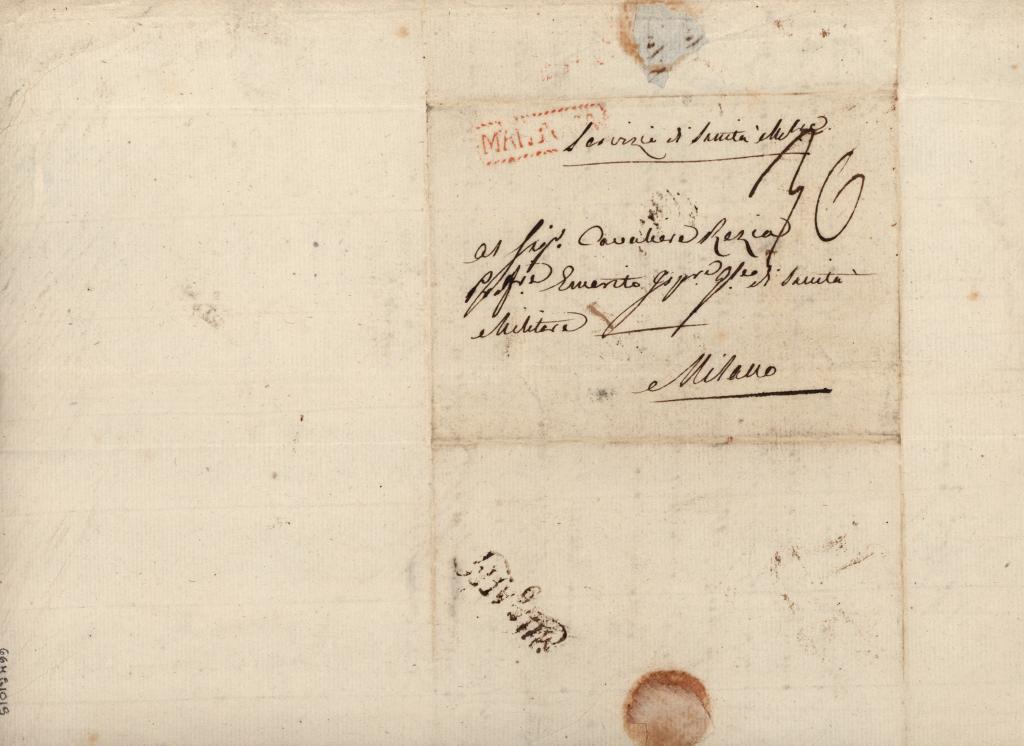 MANTOVA
Servizio di Sanità Milre.
6
Al Sigr. Cavaliere Rezia
Profre. Emerito Ispre. Gle. di Sanità
Militare
Milano